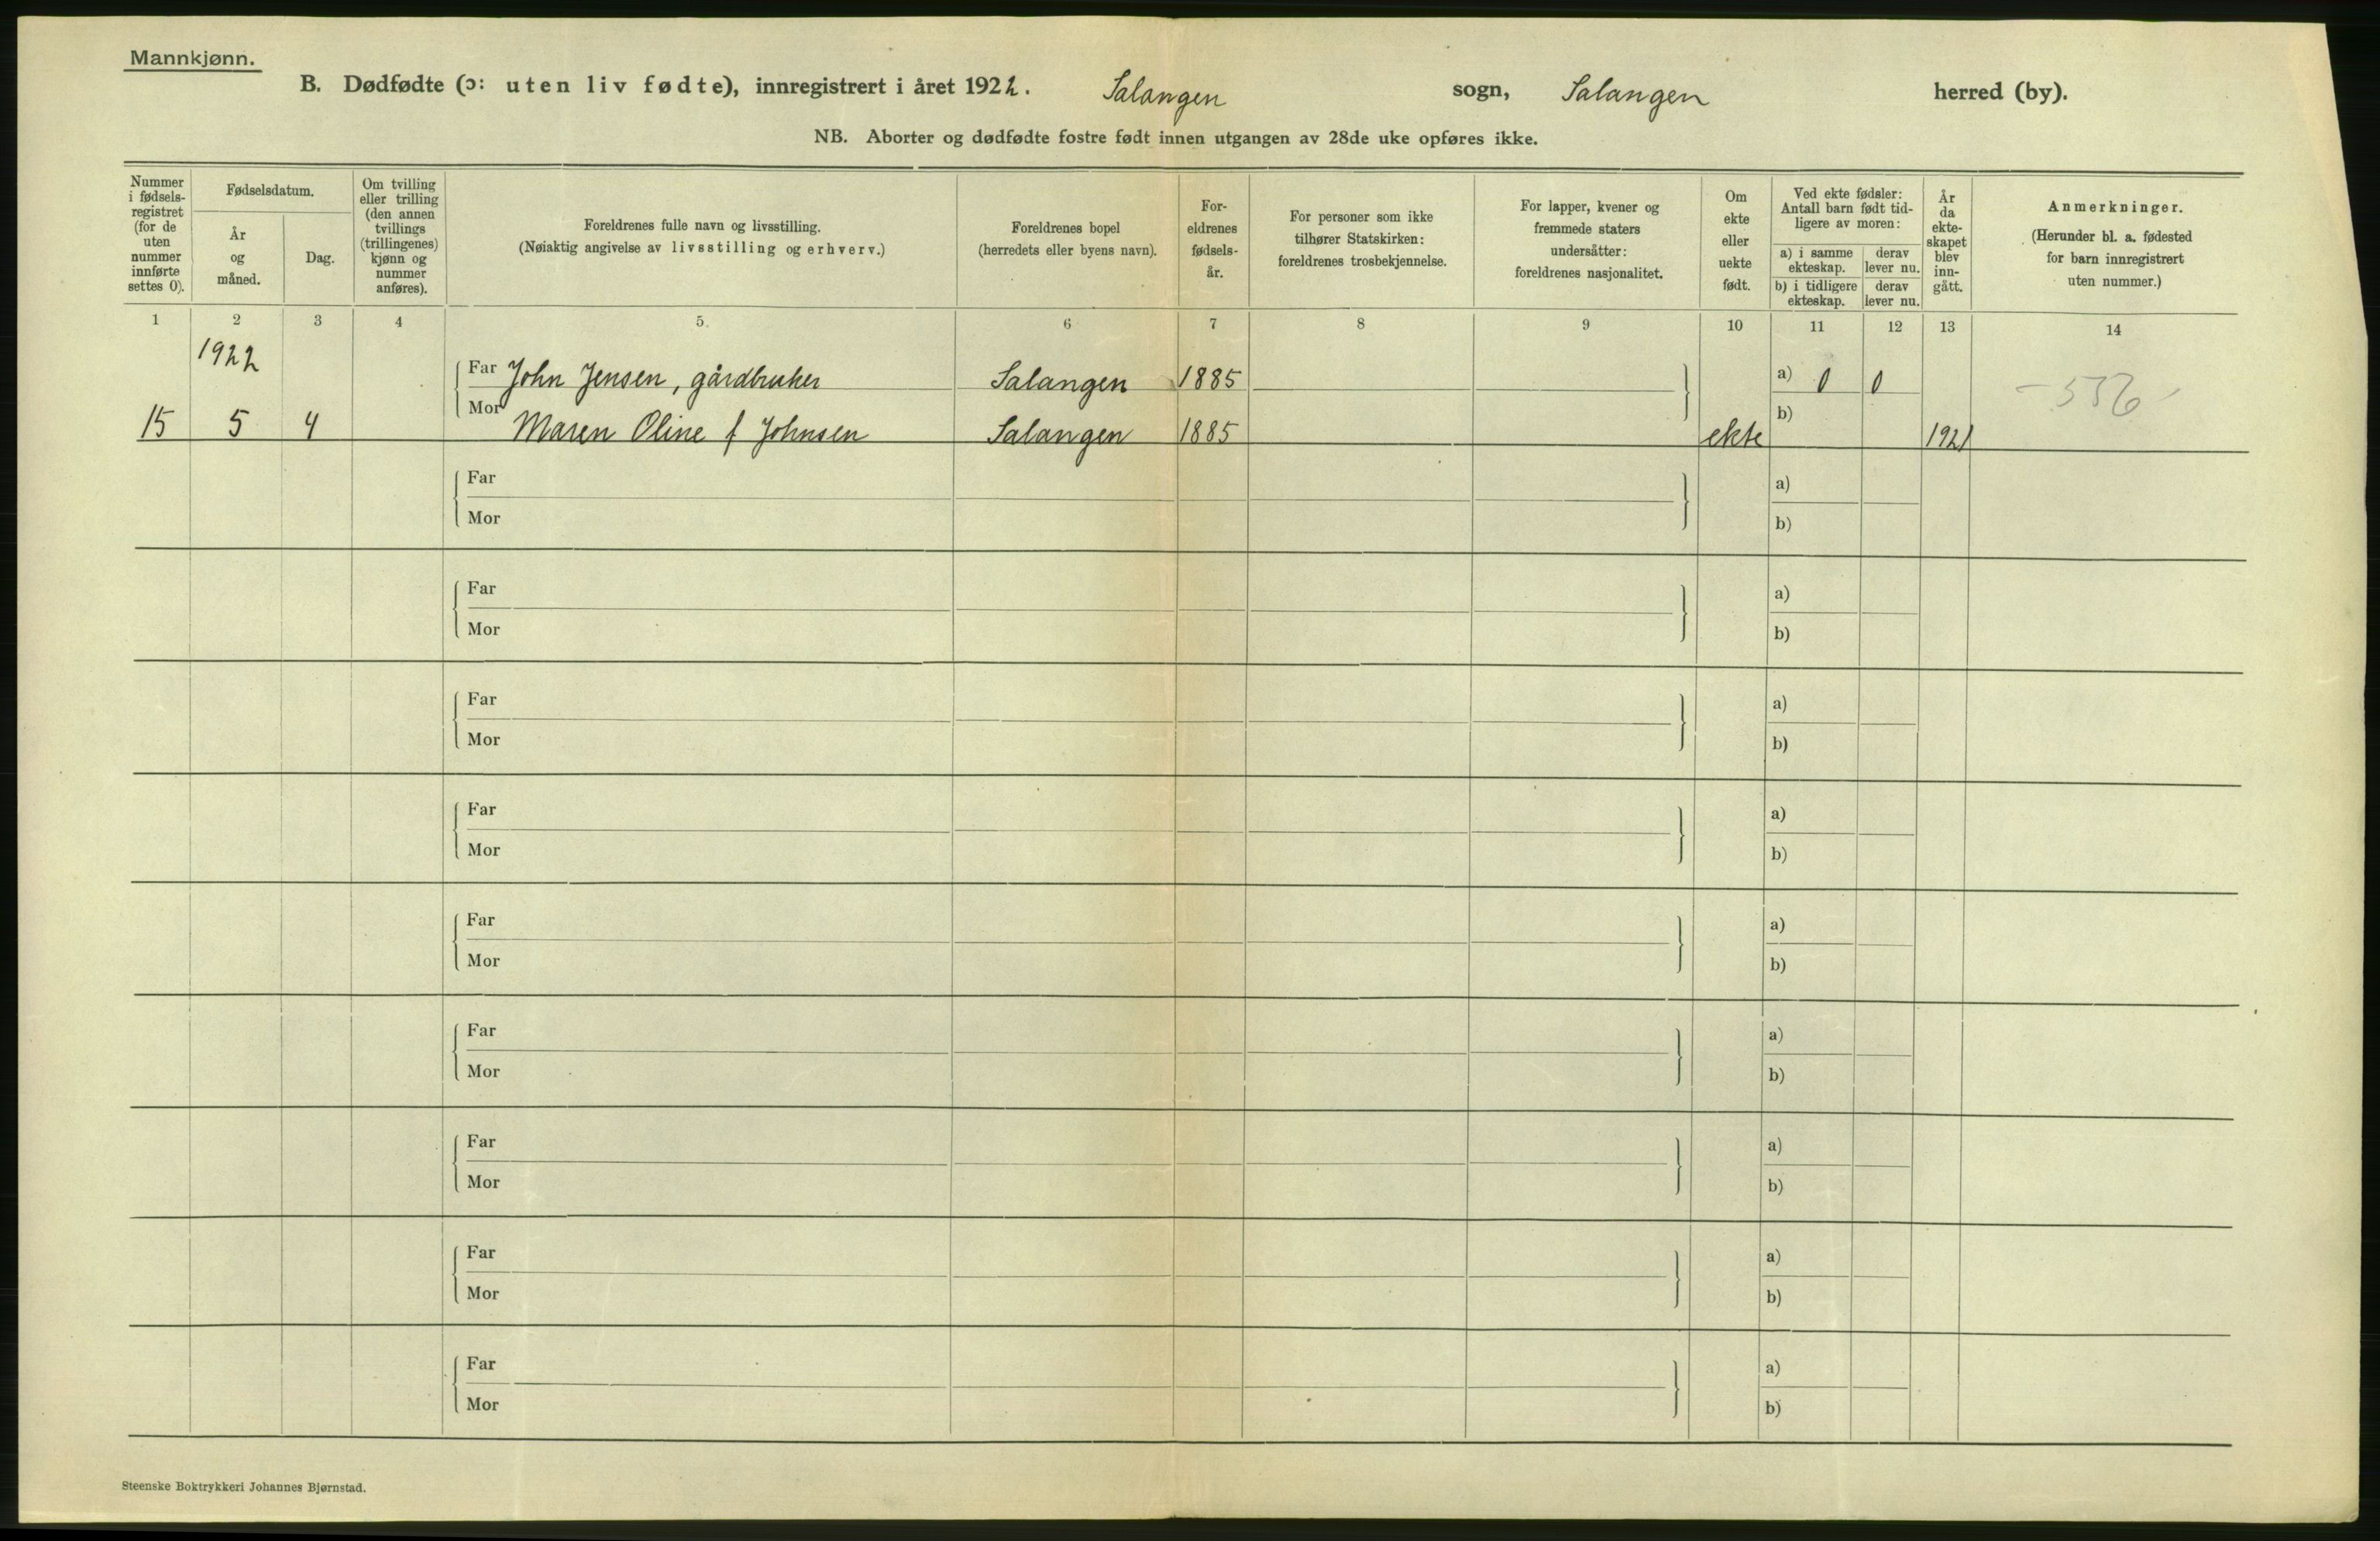 Mannkjønn.
B. Dødfødte (ɔ: uten liv fødte), innregistrert i året 1922. Salangen sogn, Salangen herred (by).
NB. Aborter og dødfødte fostre født innen utgangen av 28de uke opføres ikke.
Nummer i fødsels-registret (for de uten nummer innførte settes 0).
Fødselsdatum.
År og måned.
Dag.
Om tvilling eller trilling (den annen tvillings (trillingenes) kjønn og nummer anføres).
Foreldrenes fulle navn og livsstilling.
(Nøiaktig angivelse av livsstilling og erhverv.)
Foreldrenes bopel
(herredets eller byens navn).
For-eldrenes fødsels-år.
For personer som ikke tilhører Statskirken: foreldrenes trosbekjennelse.
For lapper, kvener og fremmede staters undersåtter: foreldrenes nasjonalitet.
Om ekte eller uekte født.
Ved ekte fødsler: Antall barn født tid-ligere av moren:
a) i samme ekteskap. derav lever nu.
b) i tidligere ekteskap. derav lever nu.
År da ekte-skapet blev inn-gått.
Anmerkninger.
(Herunder bl. a. fødested for barn innregistrert uten nummer.)
1 2 3 4 5. 6 7 8 9 10 11 12 13 14
1922
Far John Jensen, gårdbruker Salangen 1885 a) 0 0 - 556
Mor b)
15 5 4 Maren Oline f Johnsen Salangen 1885 ekte 1921
Far a)
Mor b)
Far a)
Mor b)
Far a)
Mor b)
Far a)
Mor b)
Far a)
Mor b)
Far a)
Mor b)
Far a)
Mor b)
Far a)
Mor b)
Far a)
Mor b)
Steenske Boktrykkeri Johannes Bjørnstad.